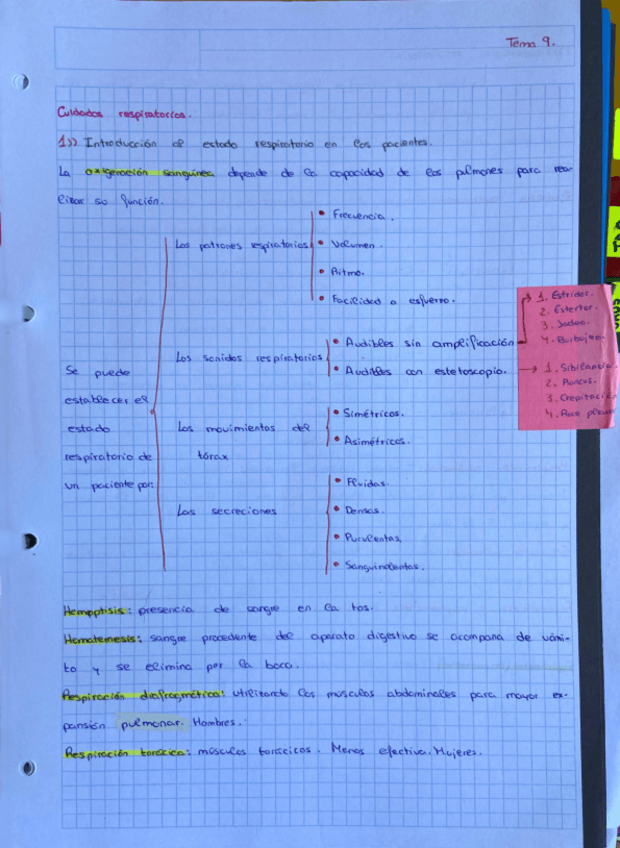 Tema 9.
Cuidados respiratorios.
1)) Introducción al estado respiratorio en los pacientes.
La oxigenación sanguínea depende de la capacidad de los pulmones para rea-
lizar su función.
Se puede
establecer el
estado
respiratorio de
un paciente por:
Los patrones respiratorios
• Frecuencia.
• Volumen.
• Ritmo.
• Facilidad o esfuerzo.
Los sonidos respiratorios
• Audibles sin amplificación
1. Estridor.
2. Estertor.
3. Jadeo.
4. Burbujeo.
• Audibles con estetoscopio.
1. Sibilancia
2. Roncus.
3. Crepitaci
4. Roce pleu
Los movimientos del
tórax
• Simétricos.
• Asimétricos.
Las secreciones
• Fluidas.
• Densas.
• Purulentas.
• Sanguinolentas.
Hemoptisis: presencia de sangre en la tos.
Hematemesis: sangre procedente del aparato digestivo se acompaña de vómi-
to y se elimina por la boca.
Respiración diafragmática: utilizando los músculos abdominales para mayor ex-
pansión pulmonar. Hombres.
Respiración torácica: músculos torácicos. Menos efectiva. Mujeres.